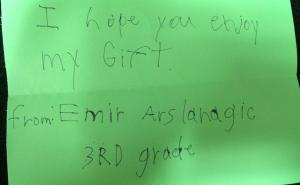 I hope you enjoy
my Gift.
from: Emir Arslanagic
3RD grade